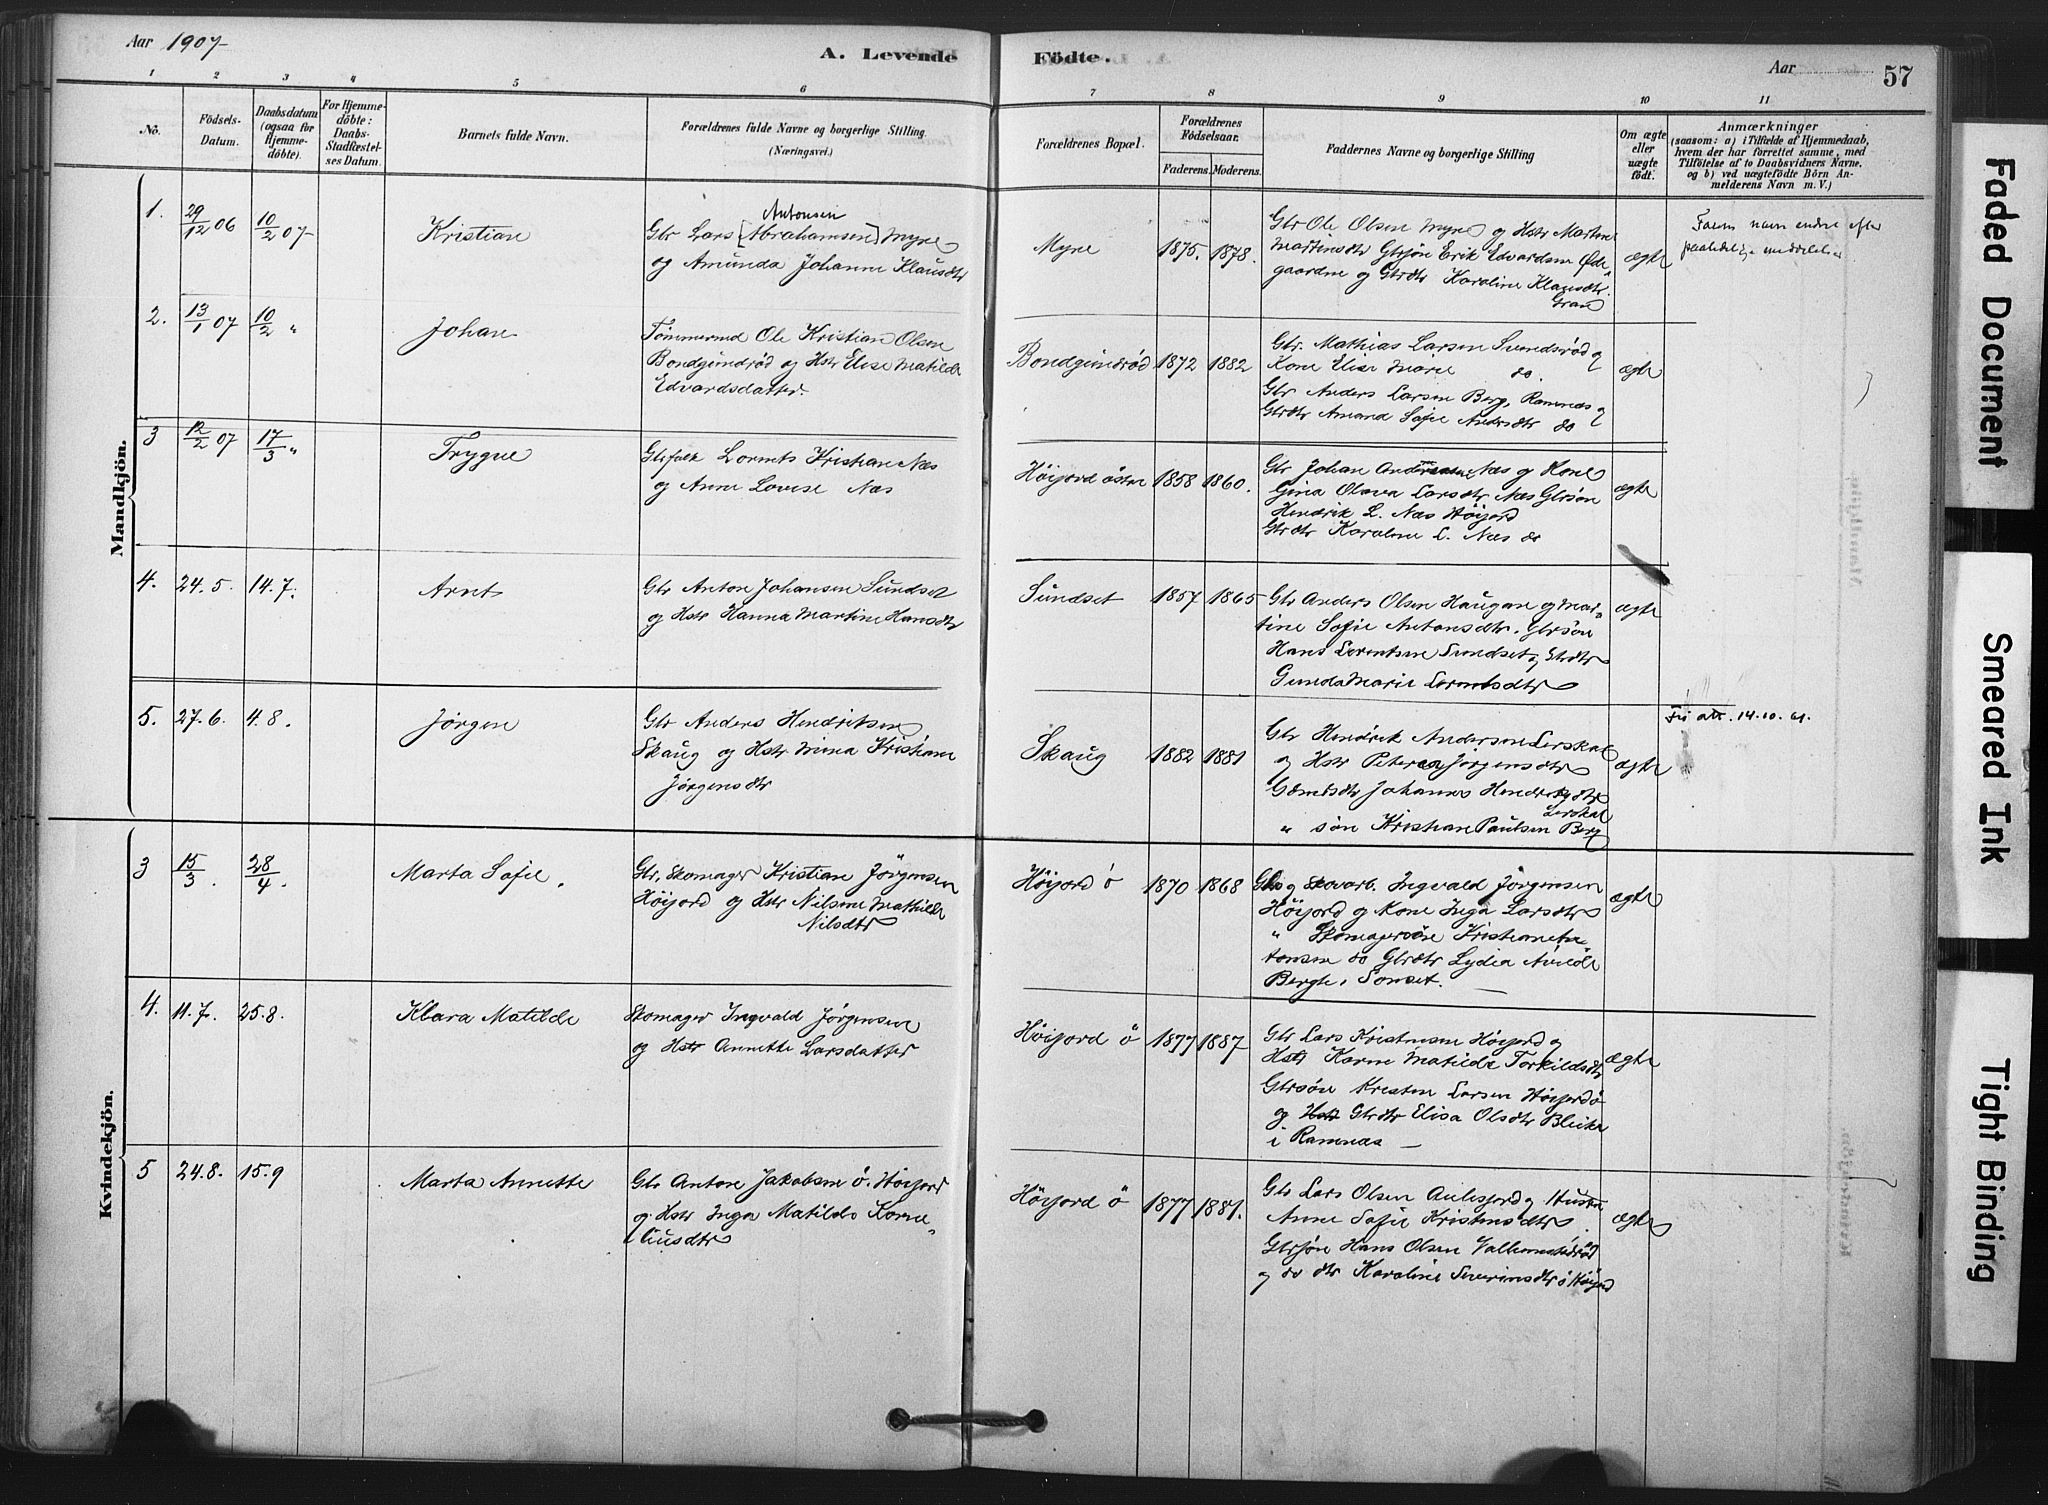 Aar 1907
A. Levende Födte.
Aar 57
1 2 3 4 5 6 7 8 9 10 11
No.
Födsels-
Datum.
Daabsdatum
(ogsaa for
Hjemme-
döbte).
For Hjemme-
döbte:
Daabs-
Stadfæstel-
ses Datum.
Barnets fulde Navn.
Forældrenes fulde Navne og borgerlige Stilling
(Næringsvei.)
Forældrenes Bopæl.
Forældrenes
Födselsaar.
Faderens. Moderens.
Faddernes Navne og borgerlige Stilling
Om ægte
eller
uægte
födt.
Anmærkninger
(saasom: a) i Tilfælde af Hjemmedaab,
hvem der har forrettet samme, med
Tilföielse af to Daabsvidners Navne.
og b) ved uægtefödte Börn An-
melderens Navn m. V.)
Mandkjön.
1. 29/12 06 10/2 07 Kristian
Antonsen
Gbr Lars [Abrahamsen] Myre
og Amunda Johanne Klausdtr
Myre 1875. 1878.
Gbr Ole Olsen Myre og Hstr Martine
Martinsdtr Gbrsön Erik Edvardsen Øde-
gaarden og Gbrdtr Karoline Klausdtr.
Gran
ægte
Farens navn endre efter
2. 13/1 07 10/2 " Johan
Tømmermd Ole Kristian Olsen
Bondgundrød og Hstr Elise Matilde
Edvardsdatter.
Bondgundrød 1872 1882
Gbr. Mathias Larsen Svendsrød og
Kone Elise Marie do.
Gbr Anders Larsen Berg, Ramnæs og
Gbrdtr Amand Sofie Andersdtr do
ægte
3 12/2 07 17/3 " Trygve
Gbrfolk Lornts Kristian Næs
og Anne Lovise Næs
Höijord östre 1858 1860.
Gbr Johan Andersen Næs og Kone
Gina Olava Larsdtr Næs Gbrsön
Hendrik L. Næs Höijord
Gbrdtr Karoline L. Næs do
ægte
4. 24.5. 14.7. Arnt
Gbr Anton Johansen Sundset
og Hstr Hanna Martine Hansdtr
Sundset 1857 1865
Gbr Anders Olsen Haugan og Mar-
tine Sofie Antonsdtr. Gbrsön
Hans Lorentsen Sundset og Gbrdtr
Gunda Marie Lorntsdtr
ægte
5. 27.6. 4.8. Jörgen
Gbr Anders Hendriksen
Skaug og Hstr Mina Kristiane
Jörgensdtr
Skaug 1882 1881
Gbr Hendrik Andersen Lerskal
og Hstr Petera Jörgensdtr
Gbrdtr Johanne Hendriksdtr
Lerskal
" sön Kristian Paulsen Berg
ægte
Fri att. 14.10.61.
Kvindekjön.
3 15/3. 28/4. Marta Sofie.
Gbr. Skomager Kristian Jörgensen
Höijord og Hstr Nilsine Mathilde
Nilsdtr
Höijord ö 1870 1868
Gbr og Skovarb. Ingvald Jörgensen
Höijord og Kone Inga Larsdtr
" Skomagersön Kristian An-
tonsen do Gbrdtr Lydia Avilde
Berghe, Sonset.
ægte
4. 11.7. 25.8. Klara Matilde
Skomager Ingvald Jörgensen
og Hstr Annette Larsdatter
Höijord ö 1877 1887
Gbr Lars Kristensen Höijord og
Hstr Karen Matilde Torkildsdtr
Gbrsön Kristen Larsen Höijord ö
og Hstr Gbrdtr Elisa Olsdtr Bleika
i Ramnæs
ægte
5 24.8. 15.9 Marta Annette
Gbr Anton Jakobsen ö. Höijord
og Hstr Inga Matilde Korne-
liusdtr
Höijord ö 1877 1881.
Gbr Lars Olsen Aulesjord og Hustru
Anne Sofie Kristensdtr.
Gbrsön Hans Olsen Valhomsrød
og do dtr Karoline Severinsdtr ö Höijord
ægte
Faded Document
Smeared Ink
Tight Binding